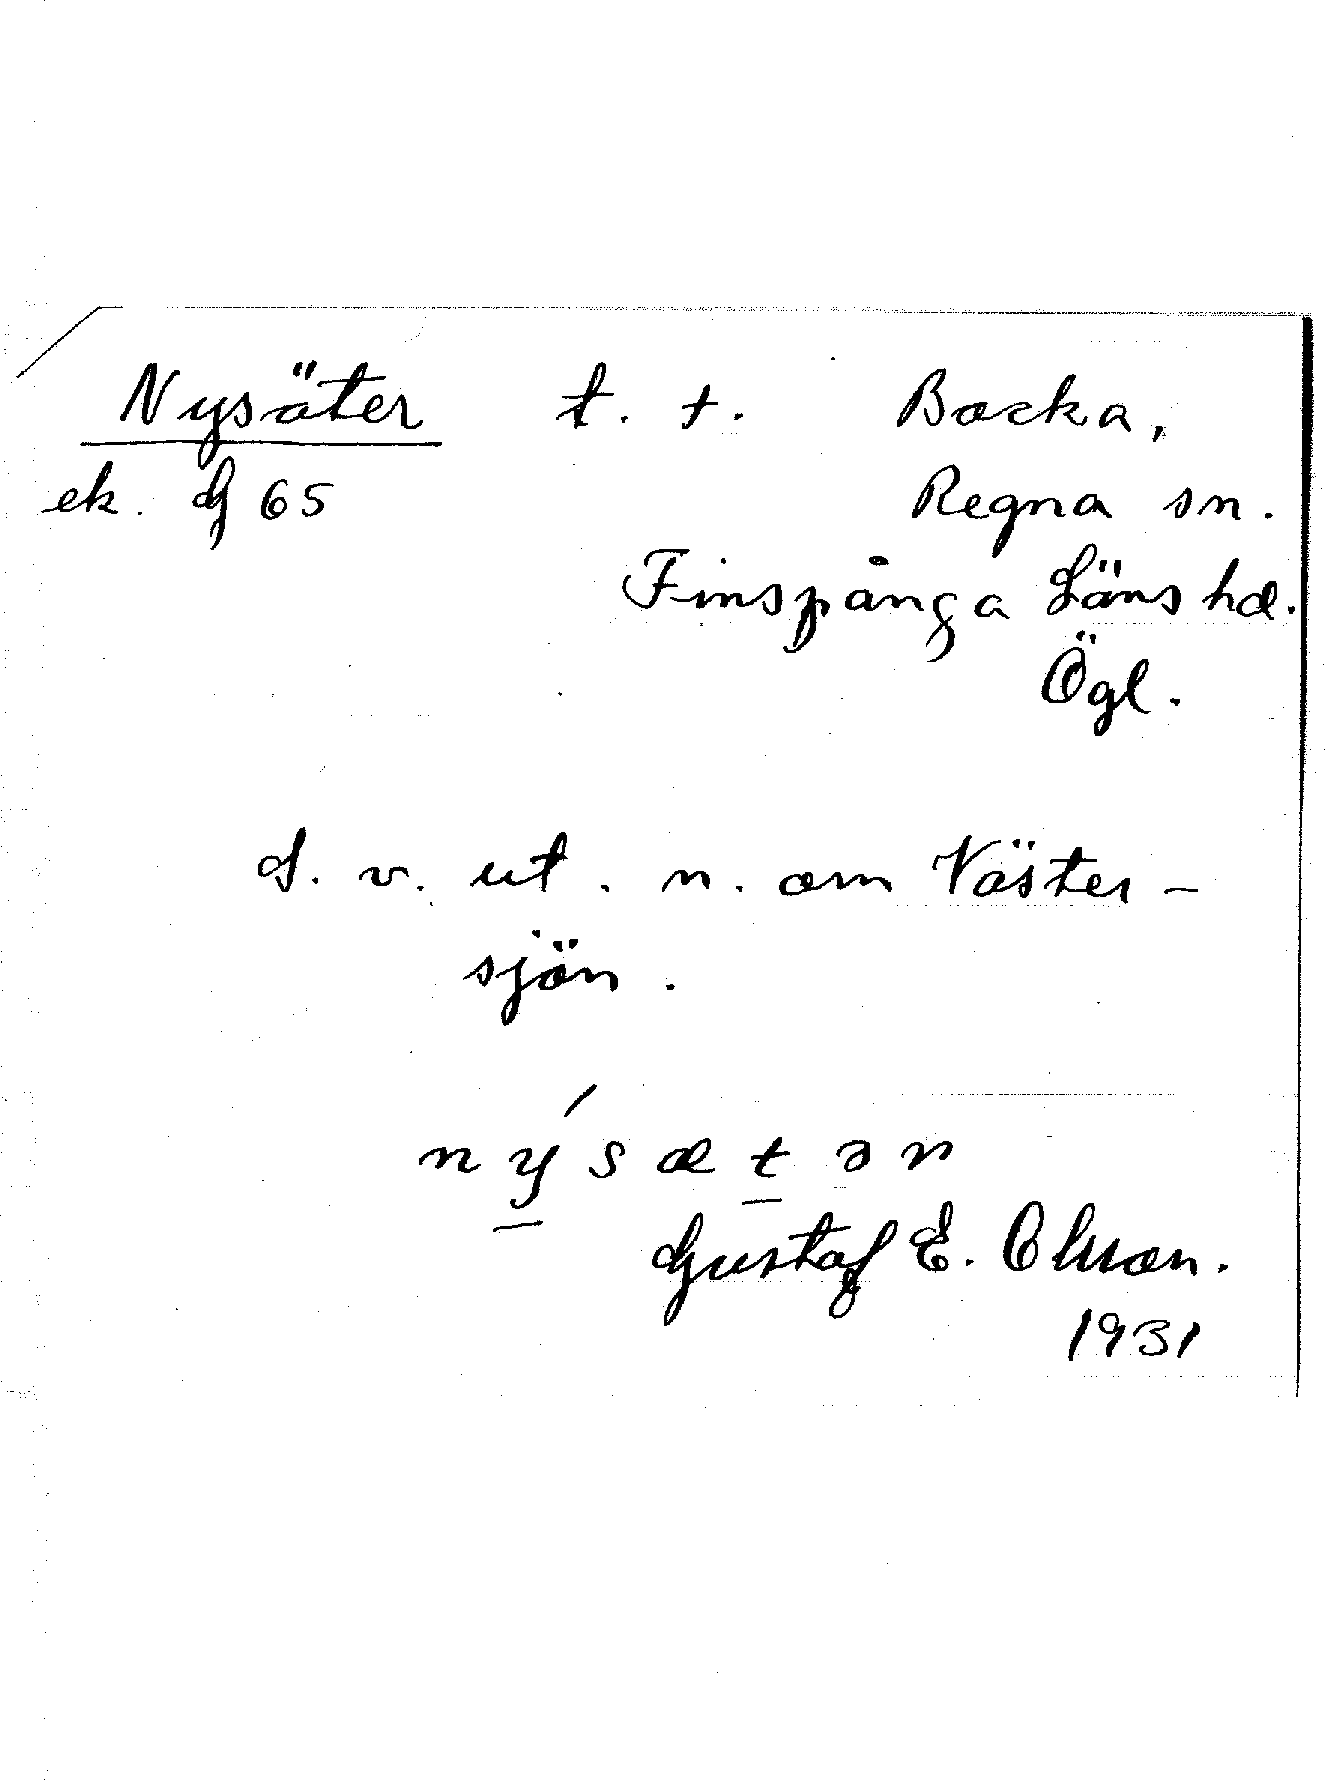 Nysäter t. t. Bocka,
ek. G 65 Regna sn.
Finspånga Läns hd.
Ögl.
d. v. ut. n. om Väster-
sjön.
nýsætər
Gustaf E. Olsson.
1931